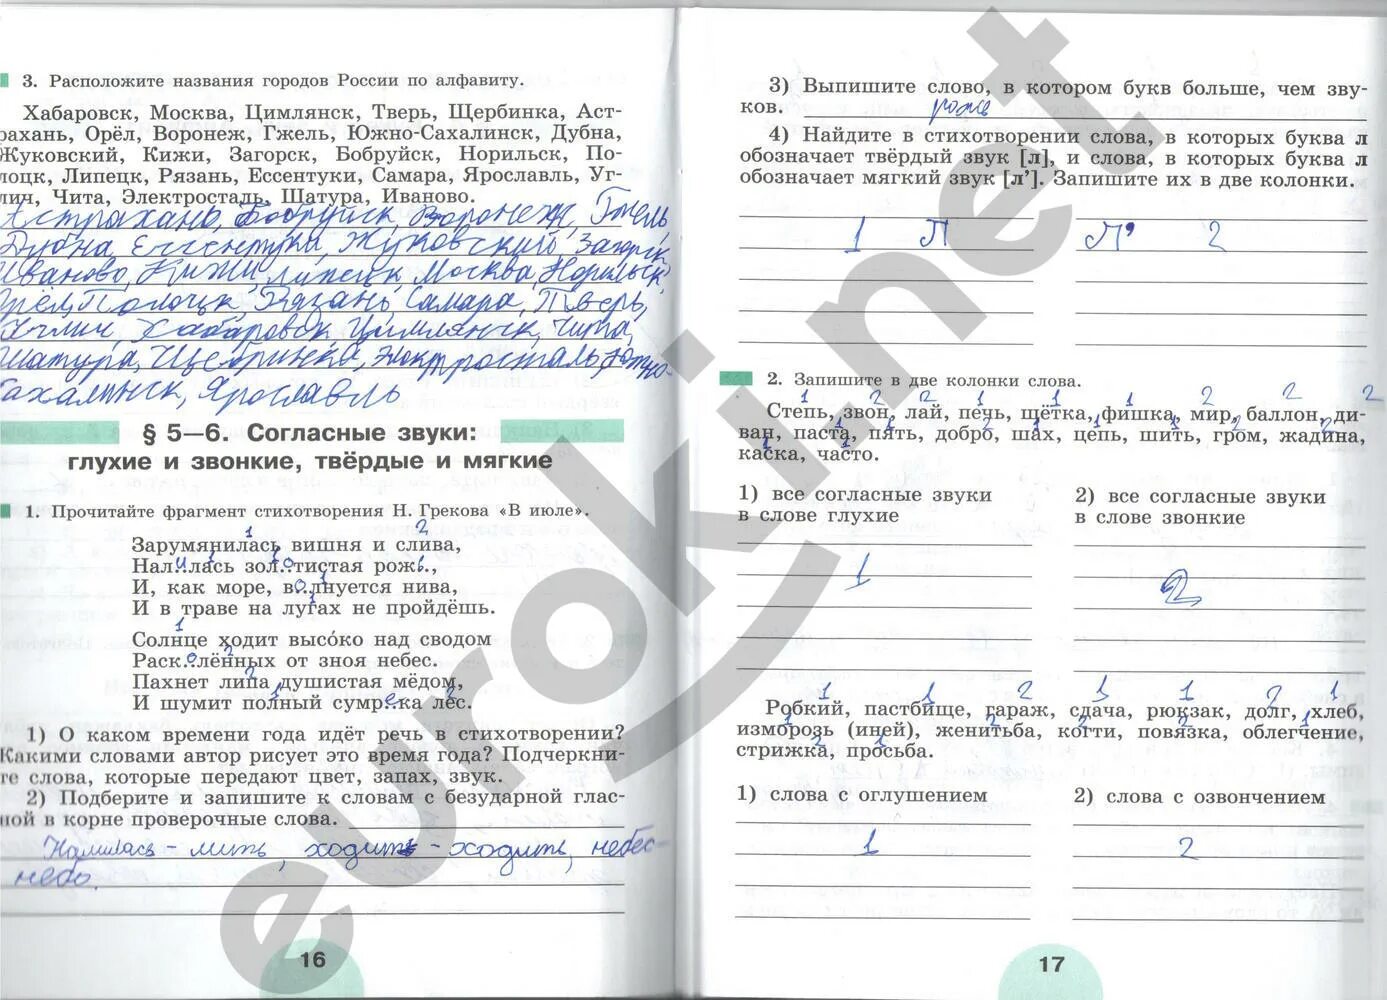 3. Расположите названия городов России по алфавиту.
Хабаровск, Москва, Цимлянск, Тверь, Щербинка, Аст-
рахань, Орёл, Воронеж, Гжель, Южно-Сахалинск, Дубна,
Жуковский, Кижи, Загорск, Бобруйск, Норильск, По-
лоцк, Липецк, Рязань, Ессентуки, Самара, Ярославль, Уг-
лич, Чита, Электросталь, Шатура, Иваново.
Астрахань, Бобруйск, Воронеж, Гжель
Дубна, Ессентуки, Жуковский, Загорск
Иваново, Кижи, Липецк, Москва, Норильск,
Орёл, Полоцк, Рязань, Самара, Тверь,
Углич, Хабаровск, Цимлянск, Чита,
Шатура, Щербинка, Электросталь, Южно-
Сахалинск, Ярославль
§ 5—6. Согласные звуки:
глухие и звонкие, твёрдые и мягкие
1. Прочитайте фрагмент стихотворения Н. Грекова «В июле».
1 2
Зарумянилась вишня и слива,
Нал.и.лась зол.о.тистая рож.ь.,
И, как море, в.о.лнуется нива,
И в траве на лугах не пройдёшь.
1
Солнце ходит высо́ко над сводом
Раск.а.лённых от зноя небес.
Пахнет липа душистая мёдом,
И шумит полный сумр.а.ка лес.
1) О каком времени года идёт речь в стихотворении?
Какими словами автор рисует это время года? Подчеркни-
те слова, которые передают цвет, запах, звук.
2) Подберите и запишите к словам с безударной глас-
ной в корне проверочные слова.
Налилась - лить, ходит - ходить, небес-
небо.
16
3) Выпишите слово, в котором букв больше, чем зву-
ков. рожь
4) Найдите в стихотворении слова, в которых буква л
обозначает твёрдый звук [л], и слова, в которых буква л
обозначает мягкий звук [л']. Запишите их в две колонки.
1 Л Л' 2
2. Запишите в две колонки слова.
1 2 2 1 1 1 2 2 2
Степь, звон, лай, печь, щётка, фишка, мир, баллон, ди-
ван, паста, пять, добро, шах, цепь, шить, гром, жадина,
каска, часто.
1) все согласные звуки
в слове глухие
2) все согласные звуки
в слове звонкие
1 2
1 1 2 1 1 2 1
Робкий, пастбище, гараж, сдача, рюкзак, долг, хлеб,
изморозь (иней), женитьба, когти, повязка, облегчение,
стрижка, просьба.
1) слова с оглушением
2) слова с озвончением
1 2
17
euroki.net